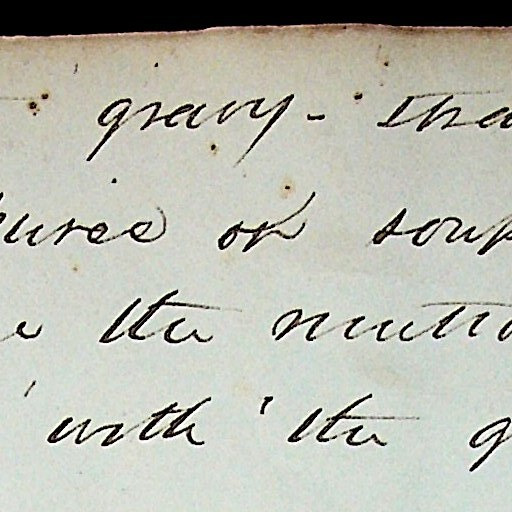 gravy - stra
puree or soup
the mutto
with the g